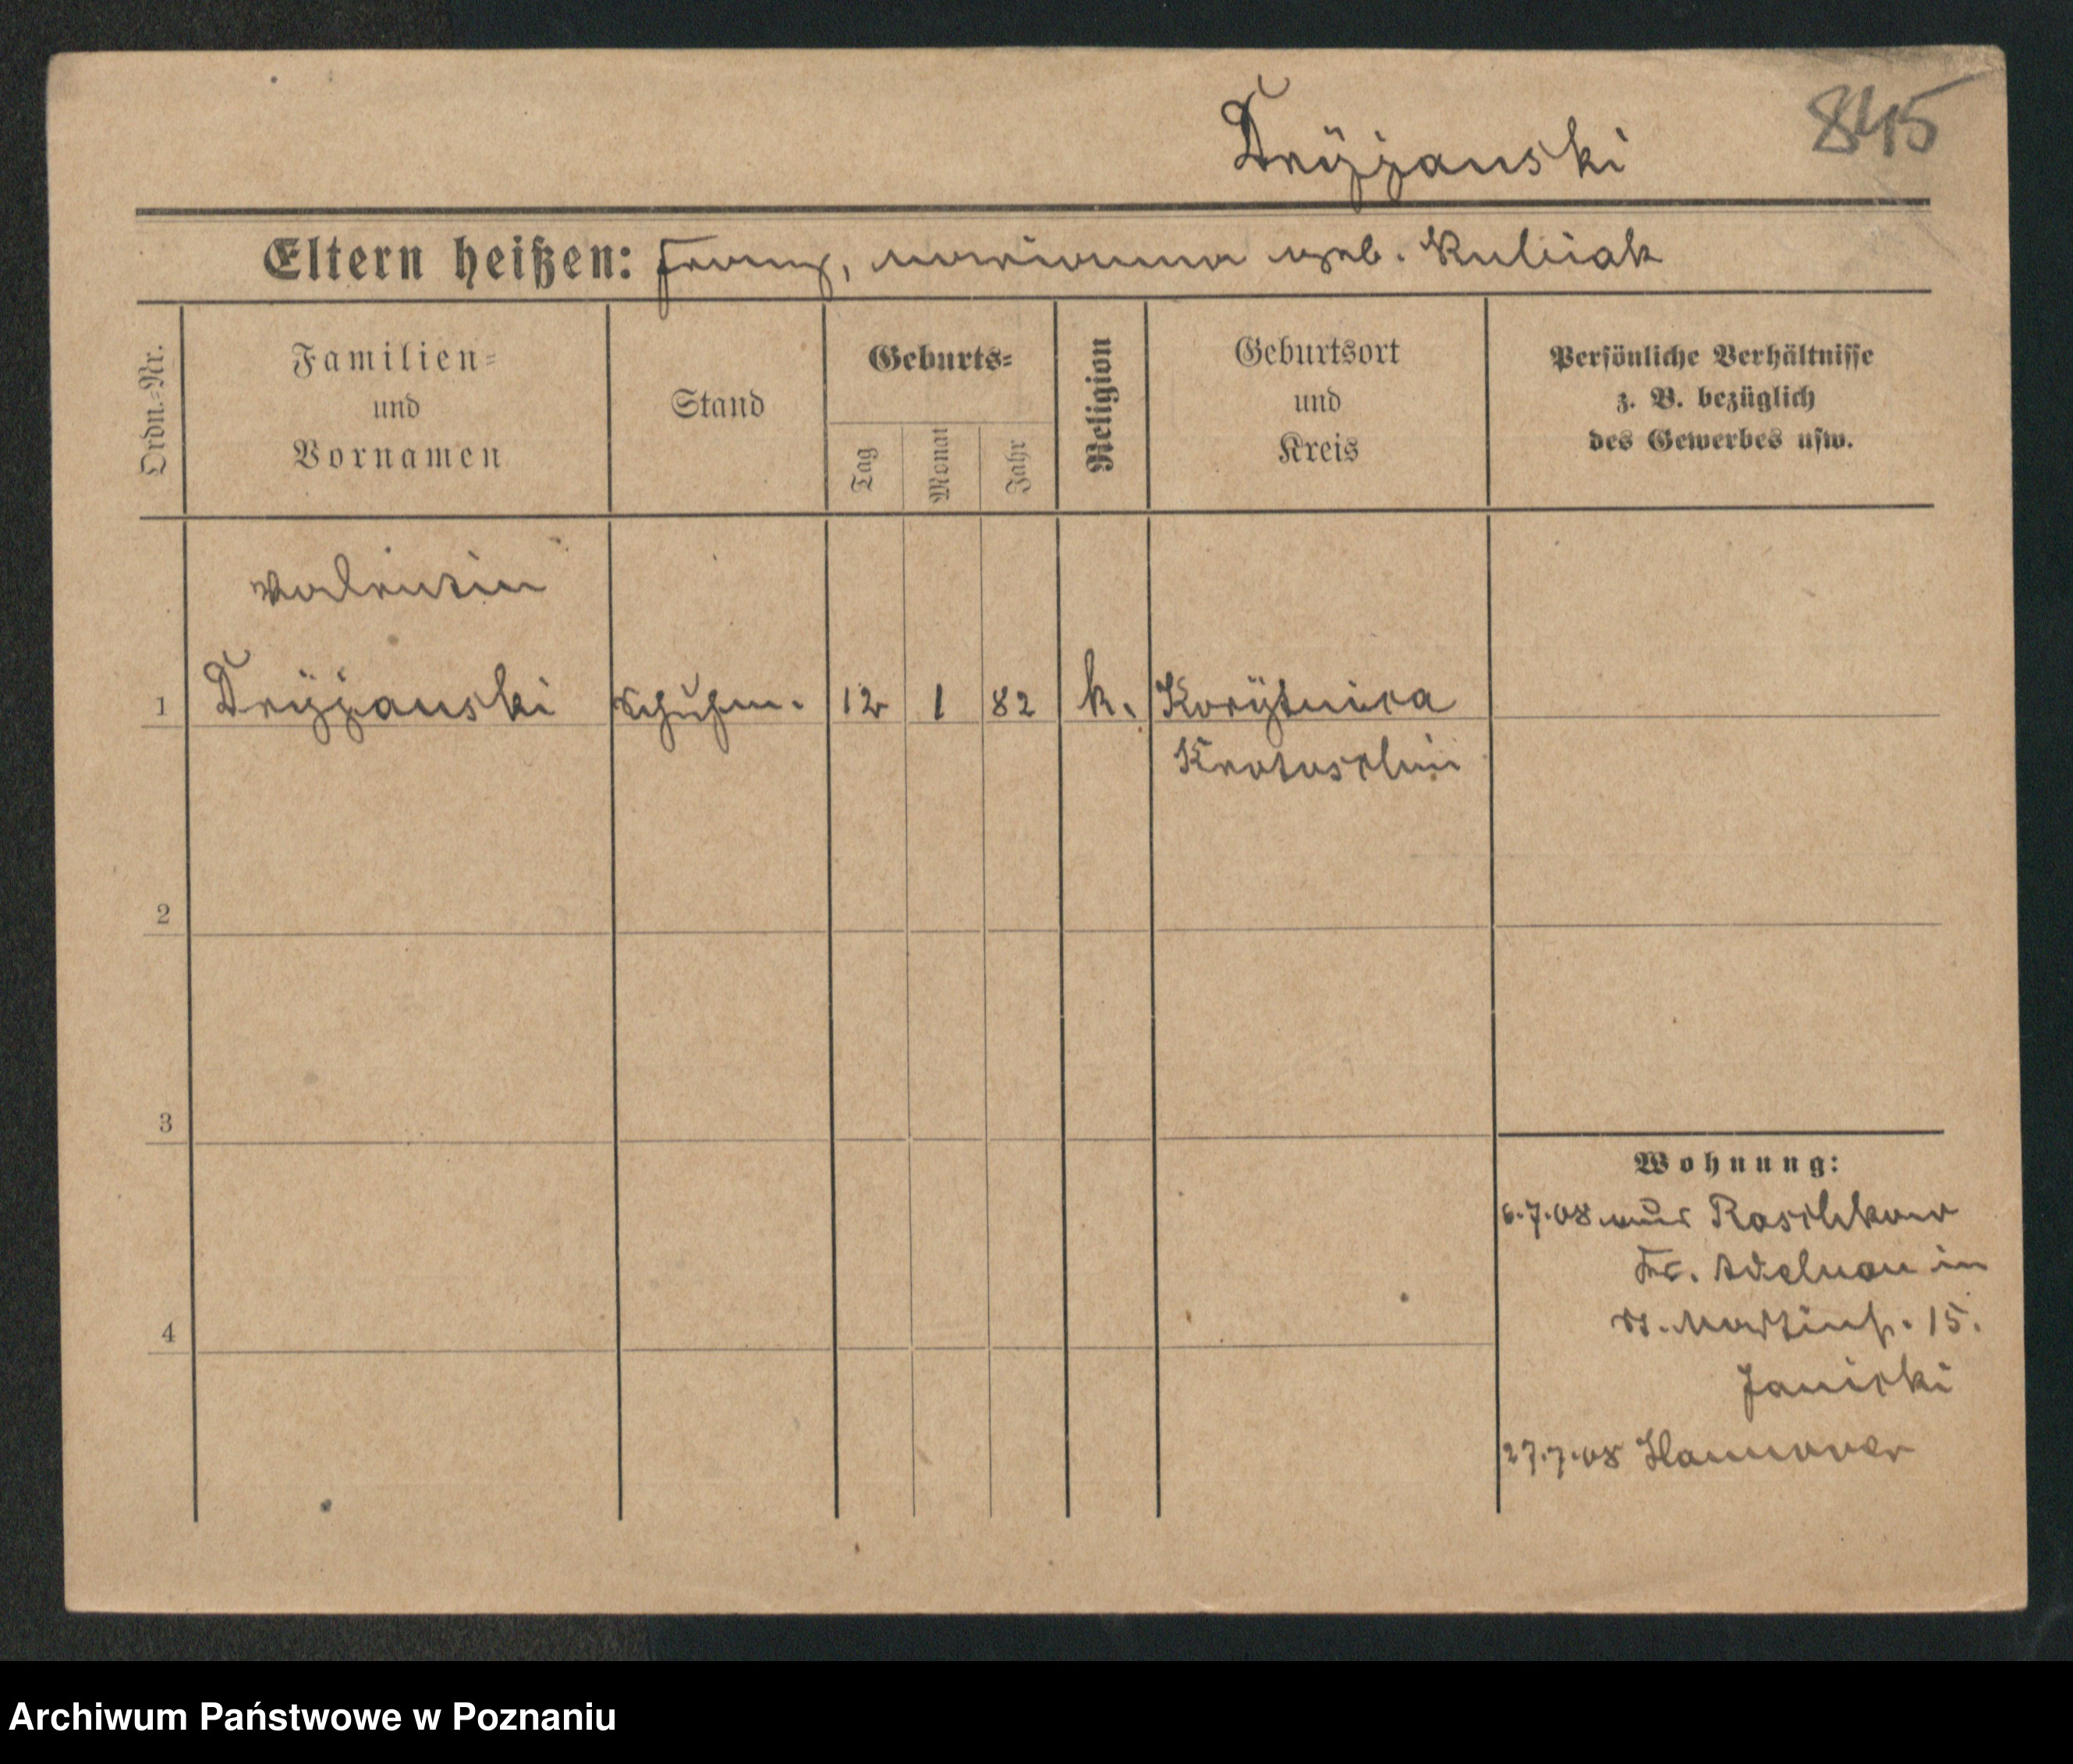 845
Dryjanski
Eltern heißen: Franz, Marianna geb. Kubiak
Ordn.=Nr.
Familien=
und
Vornamen
Stand
Geburts=
Tag
Monat
Jahr
Religion
Geburtsort
und
Kreis
Persönliche Verhältnisse
z. B. bezüglich
des Gewerbes usw.
Valentin
1 Schuhm. 12 1 82 k. Korytnica
Krotoschin
2
3
4
Wohnung:
6.7.08 aus Raschkow
Kr. Adelnau in
St. Martinstr. 15.
Janicki
27.7.08 Hannover
Archiwum Państwowe w Poznaniu